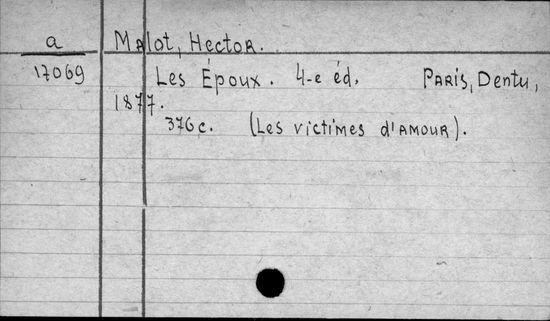 a Malot, Hector.
17069 Les Époux. 4-e éd. Paris, Dentu,
1877.
376c. (Les victimes d'amour).